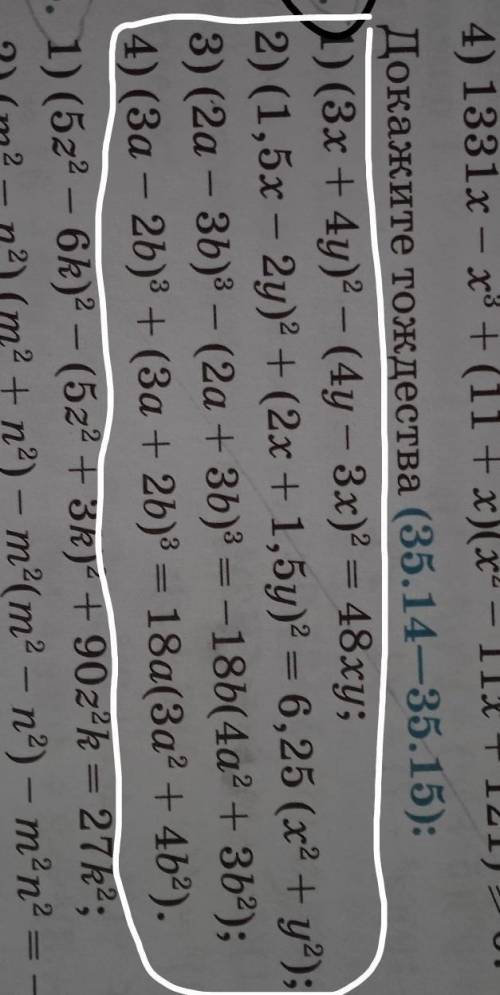 4) 1331x − x³ + (11 + x)(x² − 11x + 121) =
Докажите тождества (35.14—35.15):
1) (3x + 4y)² − (4y − 3x)² = 48xy;
2) (1,5x − 2y)² + (2x + 1,5y)² = 6,25 (x² + y²);
3) (2a − 3b)³ − (2a + 3b)³ = −18b(4a² + 3b²);
4) (3a − 2b)³ + (3a + 2b)³ = 18a(3a² + 4b²).
1) (5z² − 6k)² − (5z² + 3k)² + 90z²k = 27k²;
2) (m² − n²)(m² + n²) − m²(m² − n²) − m²n² = −